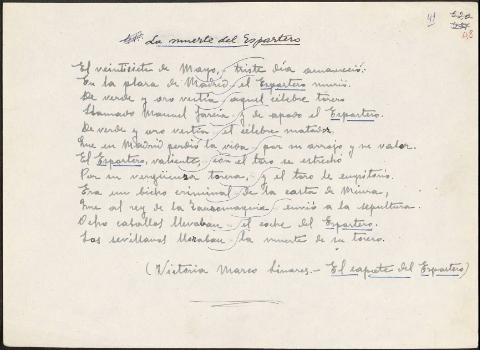 41
La muerte del Espartero
El veintisiete de Mayo, triste día amaneció:
En la plaza de Madrid el Espartero murió.
De verde y oro vestía aquel célebre torero
Llamado Manuel García y de apodo el Espartero.
De verde y oro vestía el célebre matador
Que en Madrid perdió la vida por su arrojo y su valor.
El Espartero, valiente, con el toro se estrechó
Por su vergüenza torera, y el toro le empitonó.
Era un bicho criminal de la casta de Miura,
Que al rey de la Tauromaquia envió a la sepultura.
Ocho caballos llevaban el coche del Espartero.
Las sevillanas lloraban la muerte de su torero.
(Victoria Marco Linares.- El capote del Espartero)